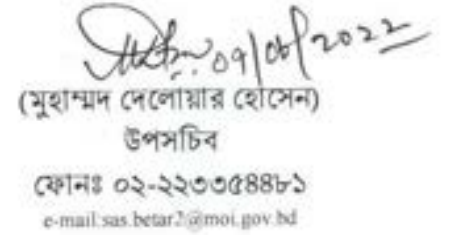 09/06/2022
(মুহাম্মদ দেলোয়ার হোসেন)
উপসচিব
ফোনঃ ০২-২২৩৩৫৪৪৮১
e-mail:sas.betar2@moi.gov.bd